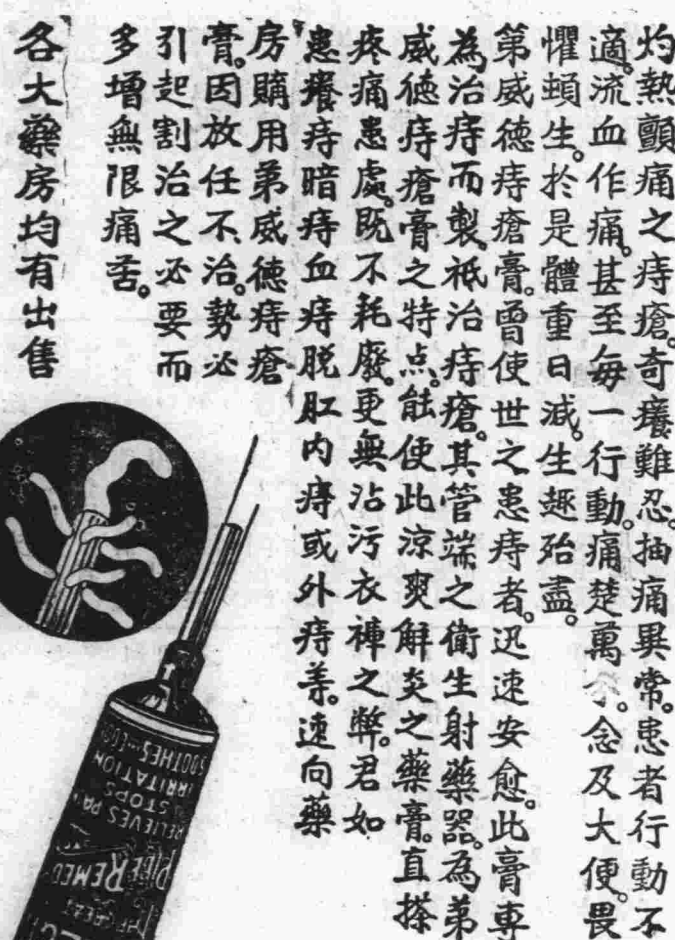 灼熱顫痛之痔瘡。奇癢難忍。抽痛異常。患者行動不
適。流血作痛。甚至每一行動。痛楚萬。念及大便。畏
懼頓生。於是體重日減。生趣殆盡。
第威德痔瘡膏。曾使世之患痔者。迅速安愈。此膏專
為治痔而製。祇治痔瘡。其管端之衛生射藥器。為第
威德痔瘡膏之特点。能使此涼爽解炎之藥膏。直搽
疼痛患處。既不耗廢。更無沾污衣褲之弊。君如
患癢痔暗痔血痔脱肛内痔或外痔等。速向藥
房購用第威德痔瘡
膏。因放任不治。勢必
引起割治之必要而
多增無限痛苦。
各大藥房均有出售
SOOTHES
IRRITATION
STOPS
RELIEVES
PILE REMED